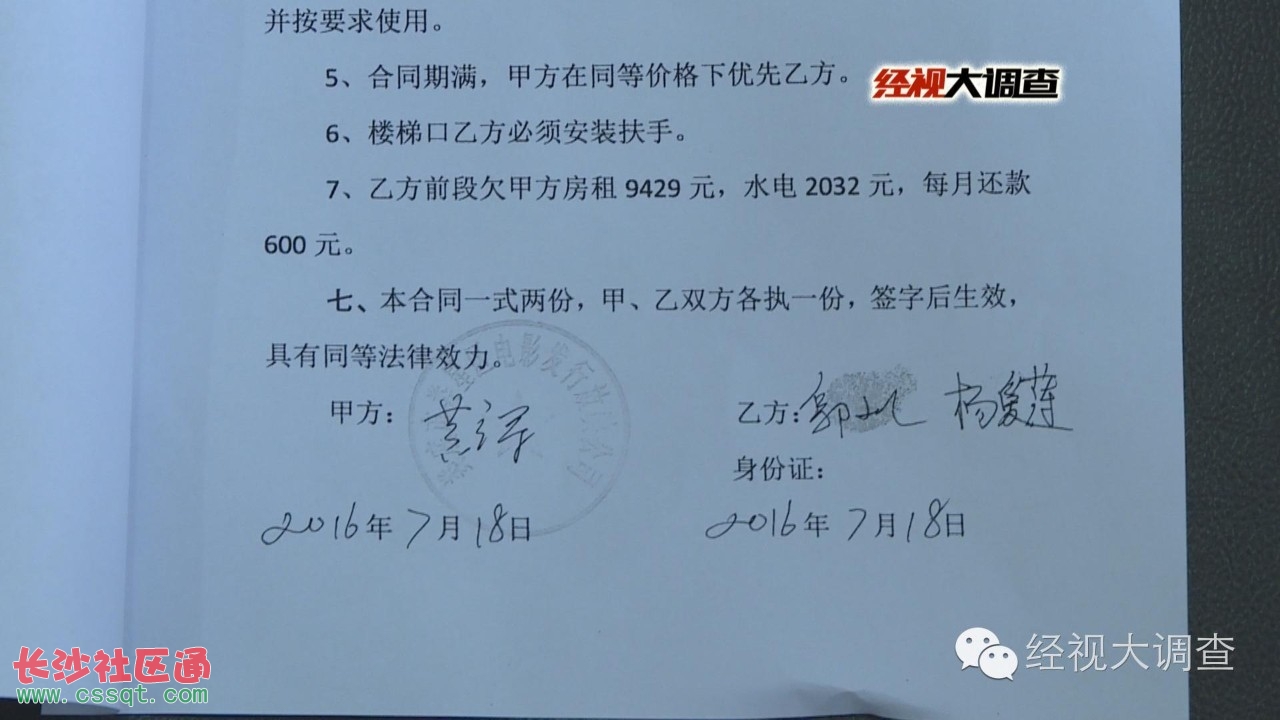 并按要求使用。
5、合同期满，甲方在同等价格下优先乙方。
经视大调查
6、楼梯口乙方必须安装扶手。
7、乙方前段欠甲方房租 9429 元，水电 2032 元，每月还款
600 元。
七、本合同一式两份，甲、乙双方各执一份，签字后生效，
具有同等法律效力。
电影发行放
公司
甲方： 黄
乙方： 郭 杨爱莲
身份证：
2016年 7月18日
2016年 7月18日
经视大调查
长沙社区通
www.cssqt.com